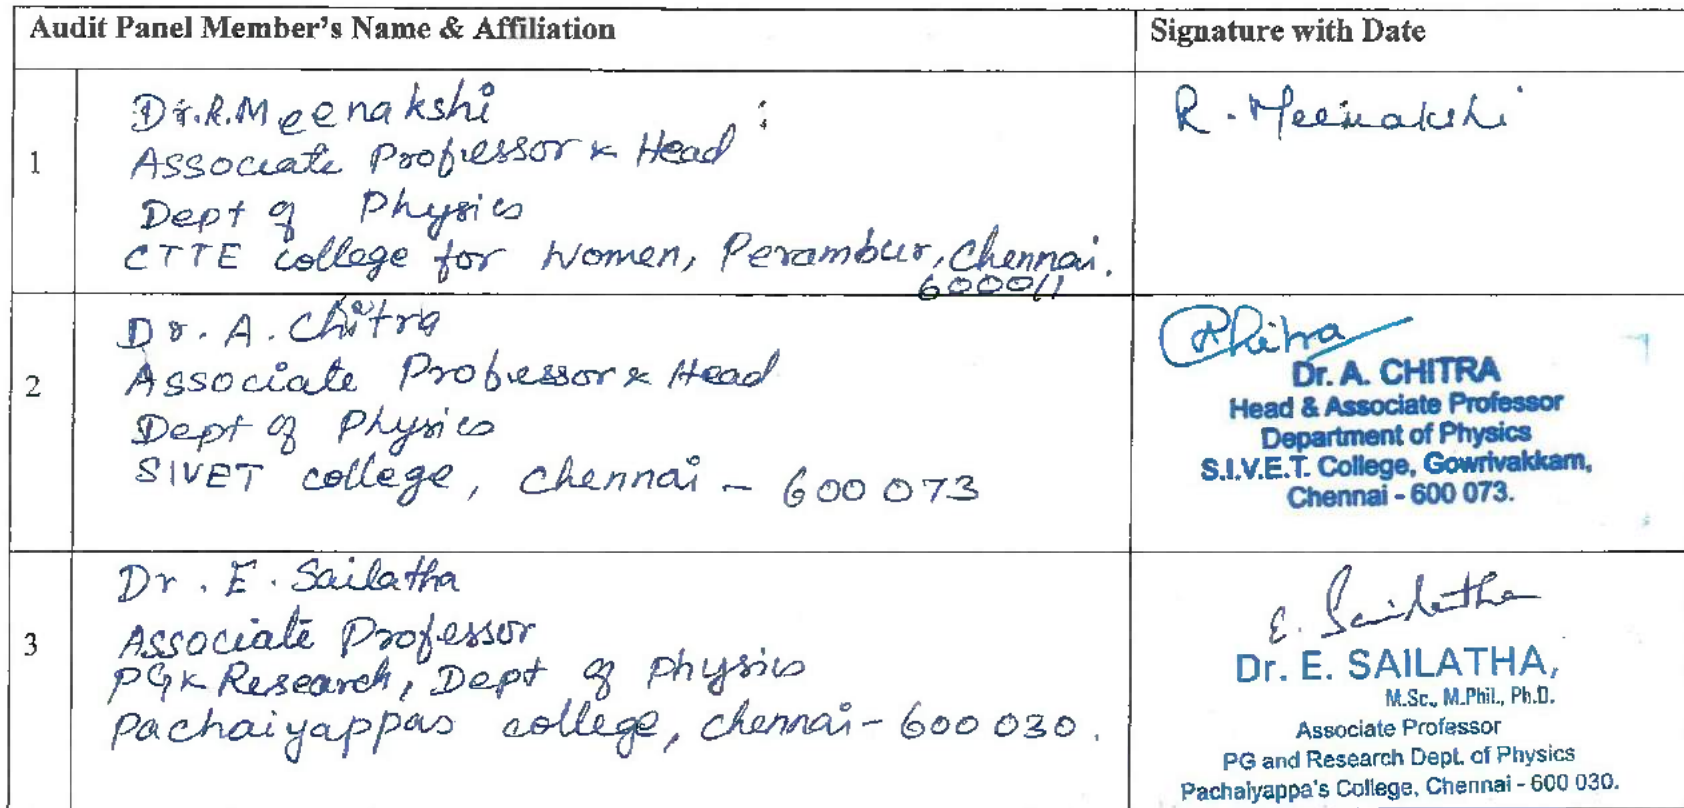 Audit Panel Member's Name & Affiliation
Signature with Date
1
Dr.R.Meenakshi
Associate Professor & Head
Dept of Physics
CTTE college for Women, Perambur, Chennai.
600011
R. Meenakshi
2
Dr. A. Chitra
Associate Professor & Head
Dept of Physics
SIVET college, Chennai - 600 073
Chitra
Dr. A. CHITRA
Head & Associate Professor
Department of Physics
S.I.V.E.T. College, Gowrivakkam,
Chennai - 600 073.
3
Dr. E. Sailatha
Associate Professor
PG & Research, Dept of Physics
Pachaiyappas college, Chennai - 600 030.
E. Sailatha
Dr. E. SAILATHA,
M.Sc., M.Phil., Ph.D.
Associate Professor
PG and Research Dept. of Physics
Pachaiyappa's College, Chennai - 600 030.